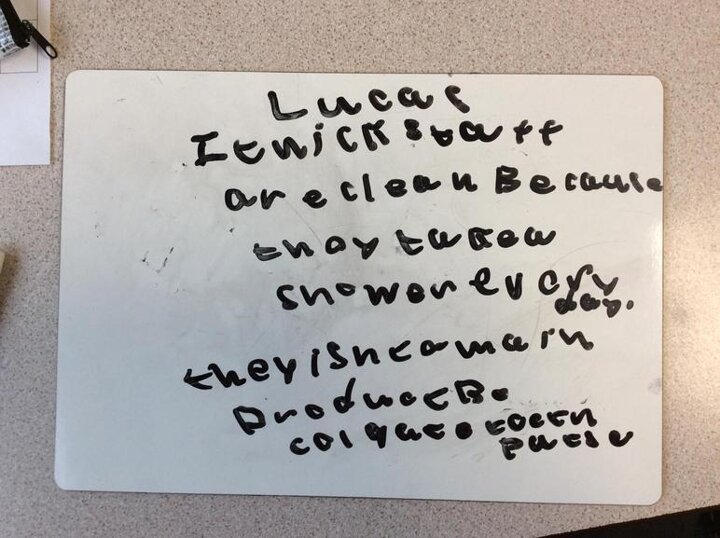 Lucas
I thick staff
are clean Because
they take a
shower every
day.
they is ht a main
product Be
colgate toeth
paste